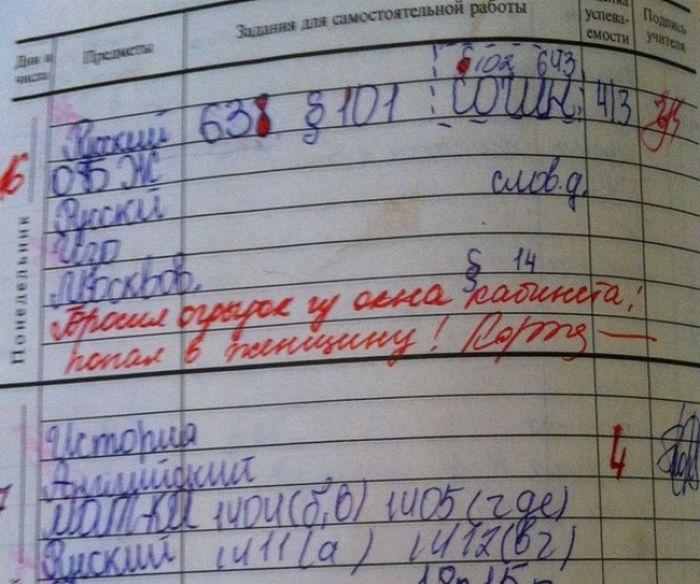 Дни и числа Предметы Задания для самостоятельной работы успева-емости Подпись учителя
§102 643
16 Понедельник
Русский 638 § 101 сочин. 4/3
ОБЖ
Русский слов.д.
Изо
Москвов. § 14
Бросил огрызок из окна кабинета!
попал в женщину!
История
Английский 4
Мат-ка 1404(б,в) 1405(где)
Русский 1411(а) 1412(вг)